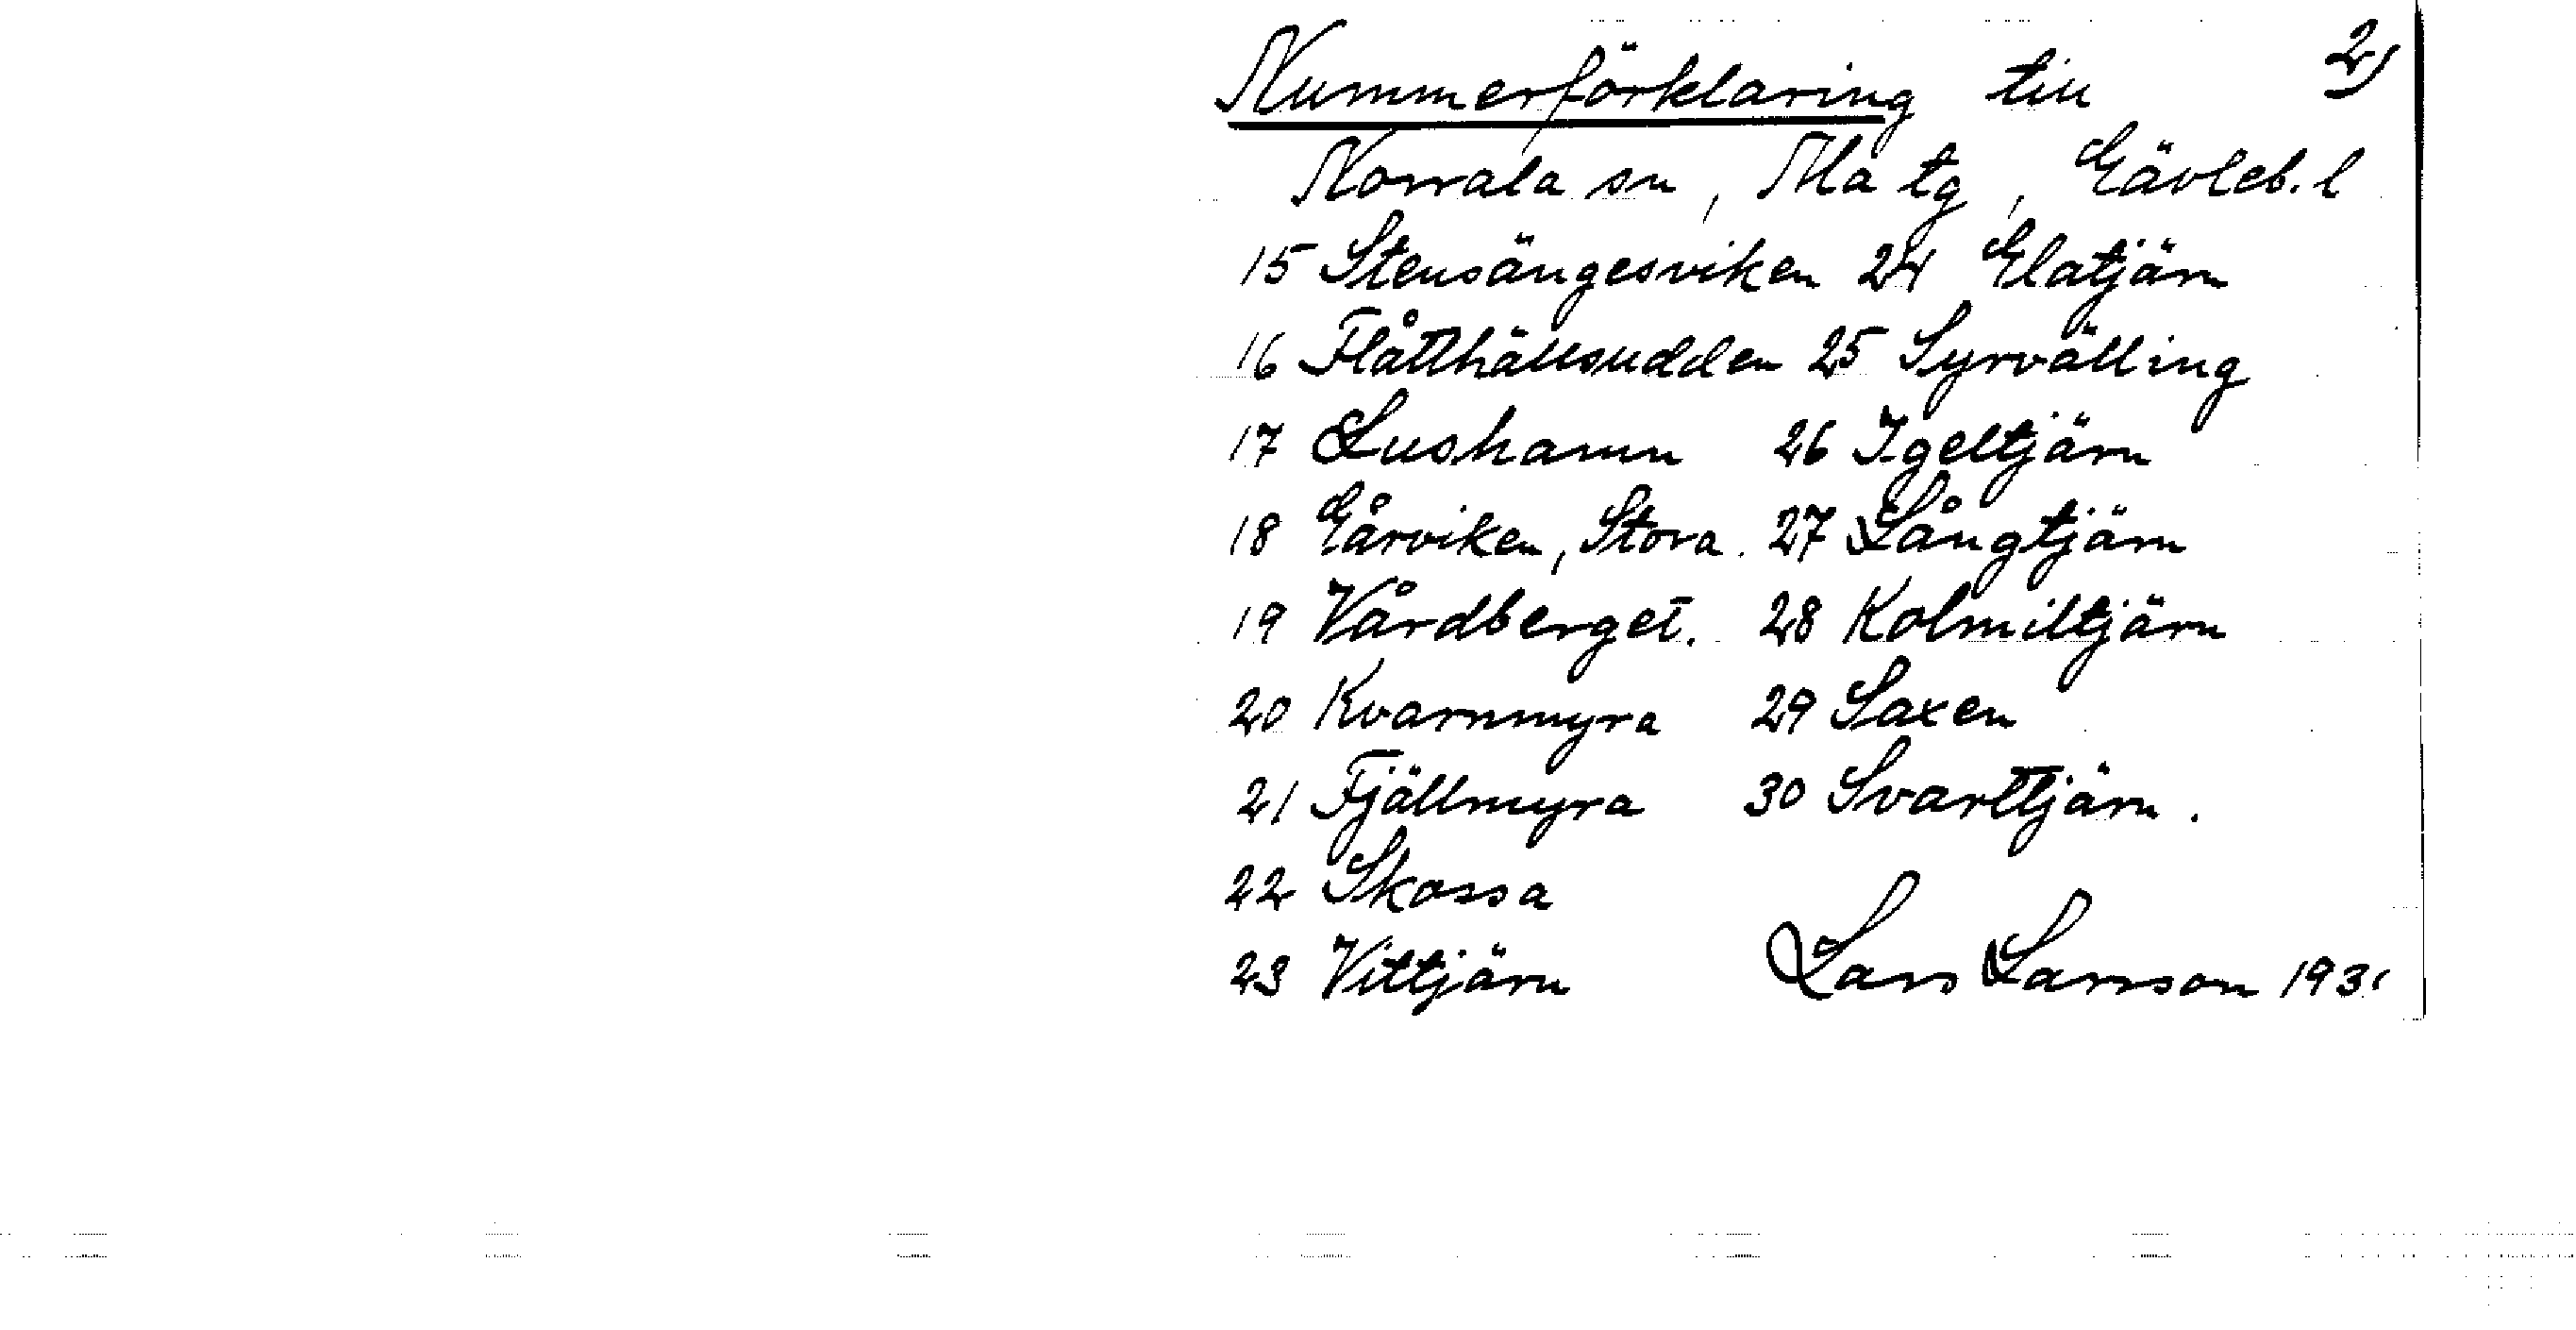 Nummerförklaring till 2)
Norrala sn, Ala tg, Gävleb. l
15 Stensängesviken 24 Glatjärn
16 Flåtthällsudden 25 Syrvälling
17 Lushamn 26 Igeltjärn
18 Gårviken, Stora. 27 Långtjärn
19 Vårdberget. 28 Kolmiltjärn
20 Kvarnmyra 29 Saxen
21 Fjällmyra 30 Svarttjärn.
22 Skossa
23 Vittjärn Lars Larsson 1931